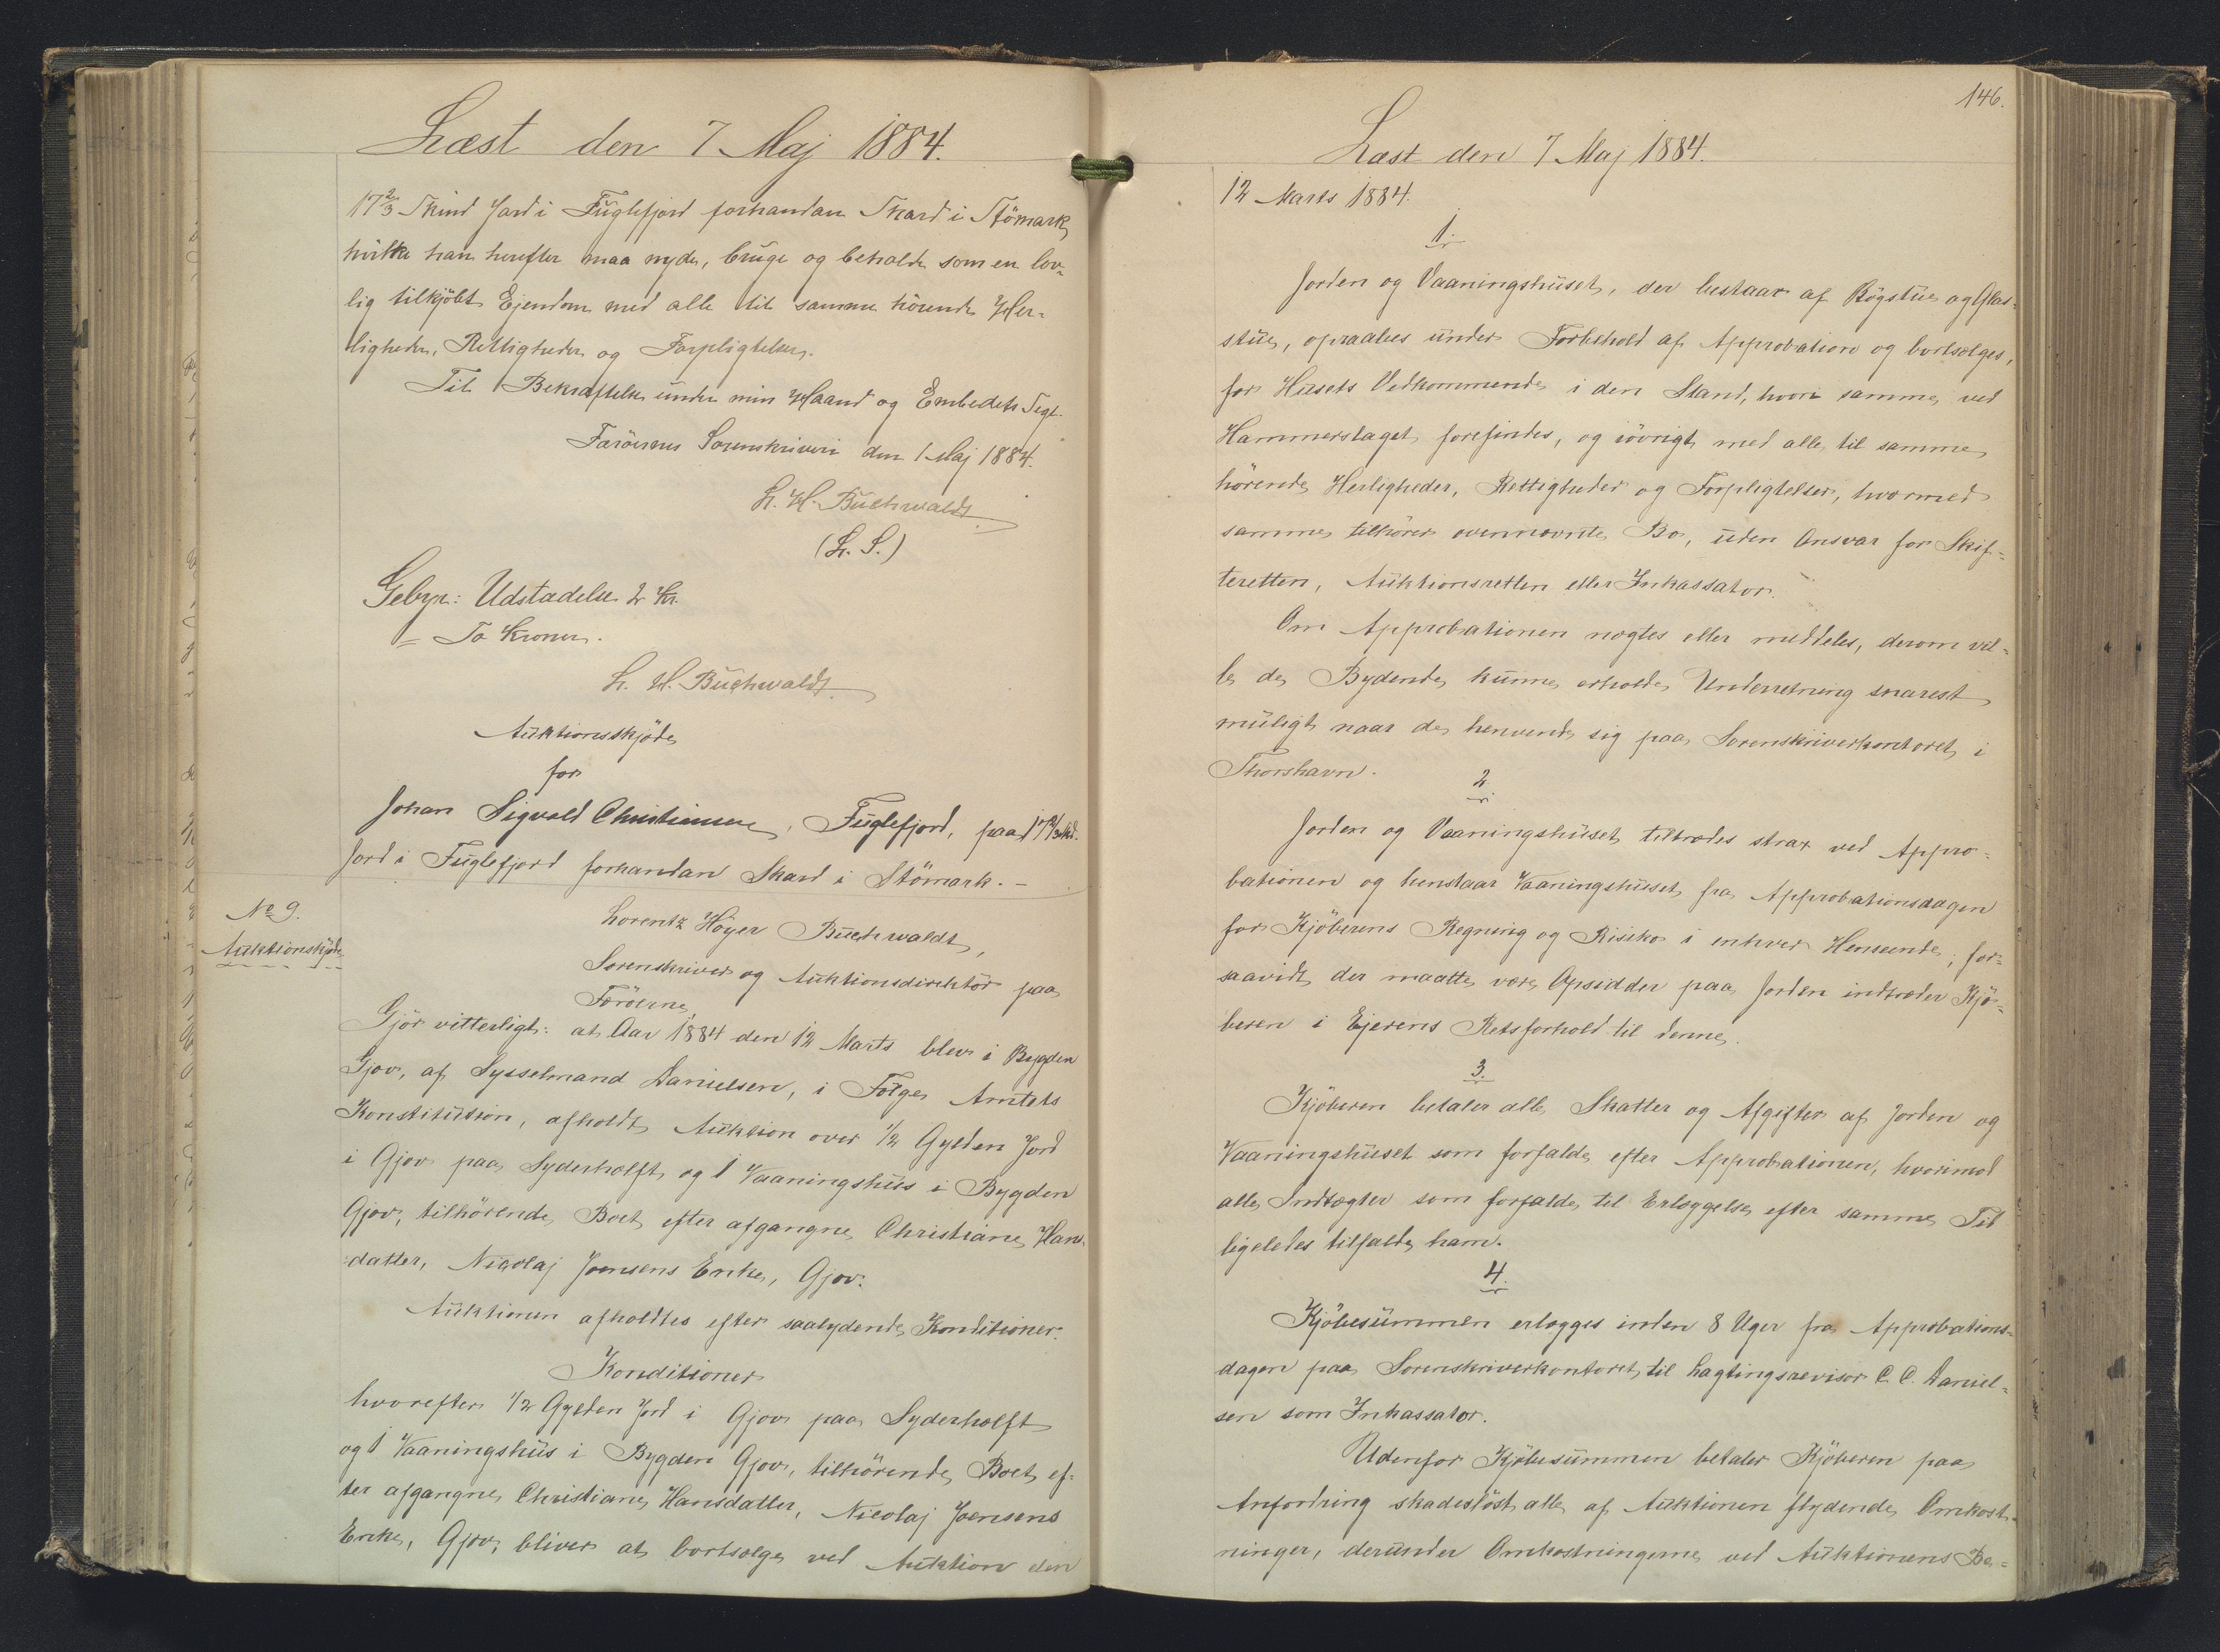 Læst den 7 Maj 1884.
17 2/3 Skind Jord i Fuglefjord forhandan Skard i Stömark,
hvilke han herefter maa nyde, bruge og beholde som en lov-
lig tilkjöbt Ejendom med alle til samme hörende Her-
ligheder, Rettigheder og Forpligtelser.
Til Bekræftelse under min Haand og Embedets Segl.
Færöernes Sorenskriveri den 1 Maj 1884.
L. H. Buchwaldt
(L. S.)
Gebyr: Udstædelse 2 Kr.
= To Kroner.
L. H. Buchwaldt
Auktionsskjöde
for
Johan Sigvald Christiansen, Fuglefjord, paa 17 2/3 Skd.
Jord i Fuglefjord forhandan Skard i Stömark. -
No 9.
Auktionsskjöde
Lorentz Höyer Buchwaldt,
Sorenskriver og Auktionsdirektör paa
Færöerne,
Gjör vitterligt: at Aar 1884 den 12 Marts blev i Bygden
Gjov, af Sysselmand Danielsen, i Fölge Amtets
Konstitution, afholdt Auktion over 1/2 Gylden Jord
i Gjov paa Syderhælft og 1 Vaaningshus i Bygden
Gjov, tilhörende Boet efter afgangne Christiane Hans-
datter, Nicolaj Joensens Enke, Gjov.
Auktionen afholdtes efter saalydende Konditioner:
Konditioner
hvorefter 1/2 Gylden Jord i Gjov paa Syderhælft
og 1 Vaaningshus i Bygden Gjov, tilhörende Boet ef-
ter afgangne Christiane Hansdatter, Nicolaj Joensens
Enke, Gjov, bliver at bortsælge ved Auktion den
146.
Læst den 7 Maj 1884.
12 Marts 1884.
1.
Jorden og Vaaningshuset, der bestaar af Rögstue og Glas-
stue, opraabes under Forbehold af Approbation og bortsælges,
for Husets Vedkommende i den Stand, hvori samme ved
Hammerslaget forefindes, og iövrigt med alle til samme
hörende Herligheder, Rettigheder og Forpligtelser, hvormed
samme tilhörer ovennævnte Bo, uden Ansvar for Skif-
teretten, Auktionsretten eller Inkassator.
Om Approbationen nægtes eller meddeles, derom vil-
le de Bydende kunne erholde Underretning snarest
muligt naar de henvende sig paa Sorenskriverkontoret i
Thorshavn.
2.
Jorden og Vaaningshuset tiltrædes strax ved Appro-
bationen og henstaar Vaaningshuset fra Approbationsdagen
for Kjöberens Regning og Risiko i enhver Henseende; for-
saavidt der maatte være Opsidder paa Jorden indtræder Kjö-
beren i Ejerens Retsforhold til denne.
3.
Kjöberen betaler alle Skatter og Afgifter af Jorden og
Vaaningshuset som forfalde efter Approbationen, hvorimod
alle Indtægter som forfalde til Erlæggelse efter samme Tid
ligeledes tilfalde ham.
4.
Kjöbesummen erlægges inden 8 Uger fra Approbations-
dagen paa Sorenskriverkontoret til Lagtingsrevisor C. C. Daniel-
sen som Inkassator.
Udenfor Kjöbesummen betaler Kjöberen paa
Anfordring skadeslöst alle af Auktionen flydende Omkost-
ninger, derunder Omkostningerne ved Auktionens Be-